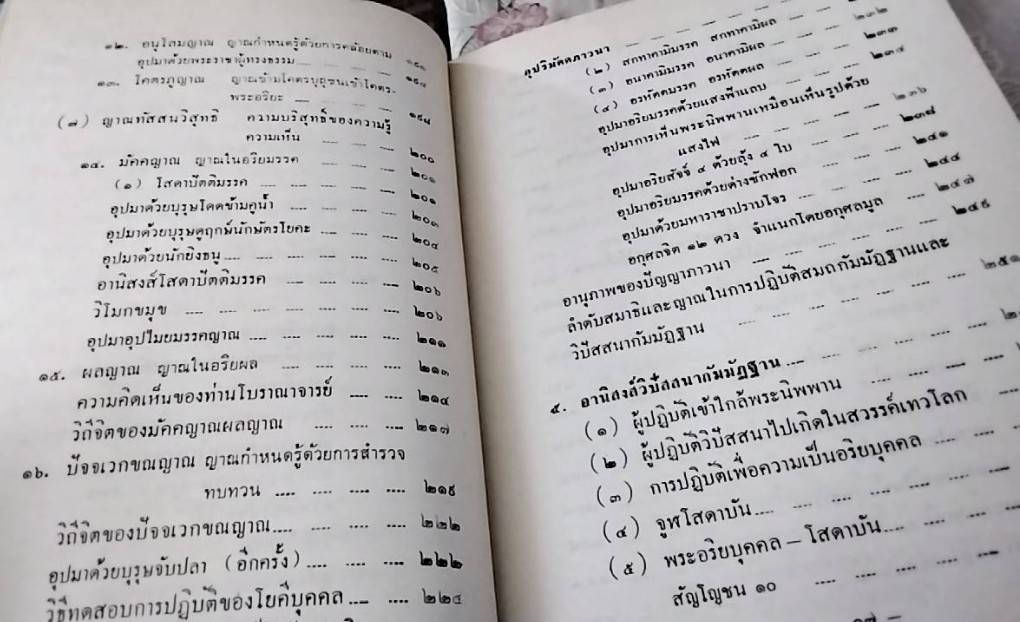 ๑๒. อนุโลมญาณ ญาณกำหนดรู้ด้วยการคล้อยตาม
อุปมาด้วยพระราชาผู้ทรงธรรม .... ....
๑๓. โคตรภูญาณ ญาณข้ามโคตรปุถุชนเข้าโคตร-
พระอริยะ .... .... .... ....
(๗) ญาณทัสสนวิสุทธิ ความบริสุทธิ์ของความรู้
ความเห็น .... .... .... ๒๐๐
๑๔. มัคคญาณ ญาณในอริยมรรค .... .... ๒๐๑
(๑) โสดาปัตติมรรค .... .... .... .... ๒๐๑
อุปมาด้วยบุรุษโดดข้ามคูน้ำ .... .... .... ๒๐๓
อุปมาด้วยบุรุษดูฤกษ์นักษัตรโยคะ .... .... ๒๐๔
อุปมาด้วยนักยิงธนู .... .... .... .... ๒๐๕
อานิสงส์โสดาปัตติมรรค .... .... .... ๒๐๖
วิโมกขมุข .... .... .... .... .... ๒๐๖
อุปมาอุปไมยมรรคญาณ .... .... .... .... ๒๑๑
๑๕. ผลญาณ ญาณในอริยผล .... .... .... ๒๑๓
ความคิดเห็นของท่านโบราณาจารย์ .... .... ๒๑๔
วิถีจิตของมัคคญาณผลญาณ .... .... .... ๒๑๗
๑๖. ปัจจเวกขณญาณ ญาณกำหนดรู้ด้วยการสำรวจ
ทบทวน .... .... .... .... ๒๑๙
วิถีจิตของปัจจเวกขณญาณ .... .... .... .... ๒๒๒
อุปมาด้วยบุรุษจับปลา (อีกครั้ง) .... .... .... ๒๒๒
วิธีทดสอบการปฏิบัติของโยคีบุคคล .... .... ๒๒๔
อุปริมัคคภาวนา .... .... .... .... ....
(๒) สกทาคามิมรรค สกทาคามิผล .... .... ๒๓๒
(๓) อนาคามิมรรค อนาคามิผล .... .... ๒๓๓
(๔) อรหัตตมรรค อรหัตตผล .... .... ๒๓๔
อุปมาอริยมรรคด้วยแสงฟ้าแลบ .... ....
อุปมาการเห็นพระนิพพานเหมือนเห็นรูปด้วย
แสงไฟ .... .... .... .... ๒๓๖
อุปมาอริยสัจจ์ ๔ ด้วยถุง ๔ ใบ .... .... ๒๓๘
อุปมาอริยมรรคด้วยด่างซักฟอก .... .... ๒๔๑
อุปมาด้วยมหาราชาปราบโจร .... .... ๒๔๔
อกุศลจิต ๑๒ ดวง จำแนกโดยอกุศลมูล .... ๒๔๗
อานุภาพของปัญญาภาวนา .... .... .... .... ๒๔๙
ลำดับสมาธิและญาณในการปฏิบัติสมถกัมมัฏฐานและ
วิปัสสนากัมมัฏฐาน .... .... .... .... ๒๕๑
๕. อานิสงส์วิปัสสนากัมมัฏฐาน .... .... .... ....
(๑) ผู้ปฏิบัติเข้าใกล้พระนิพพาน .... .... ....
(๒) ผู้ปฏิบัติวิปัสสนาไปเกิดในสวรรค์เทวโลก ....
(๓) การปฏิบัติเพื่อความเป็นอริยบุคคล .... ....
(๔) จูฬโสดาบัน .... .... .... .... ....
(๕) พระอริยบุคคล – โสดาบัน .... .... ....
สัญโญชน ๑๐ .... .... .... ....